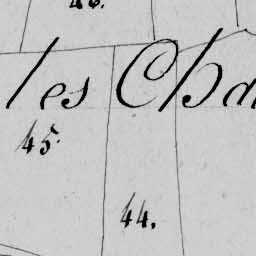 46.
les Cha
45.
44.